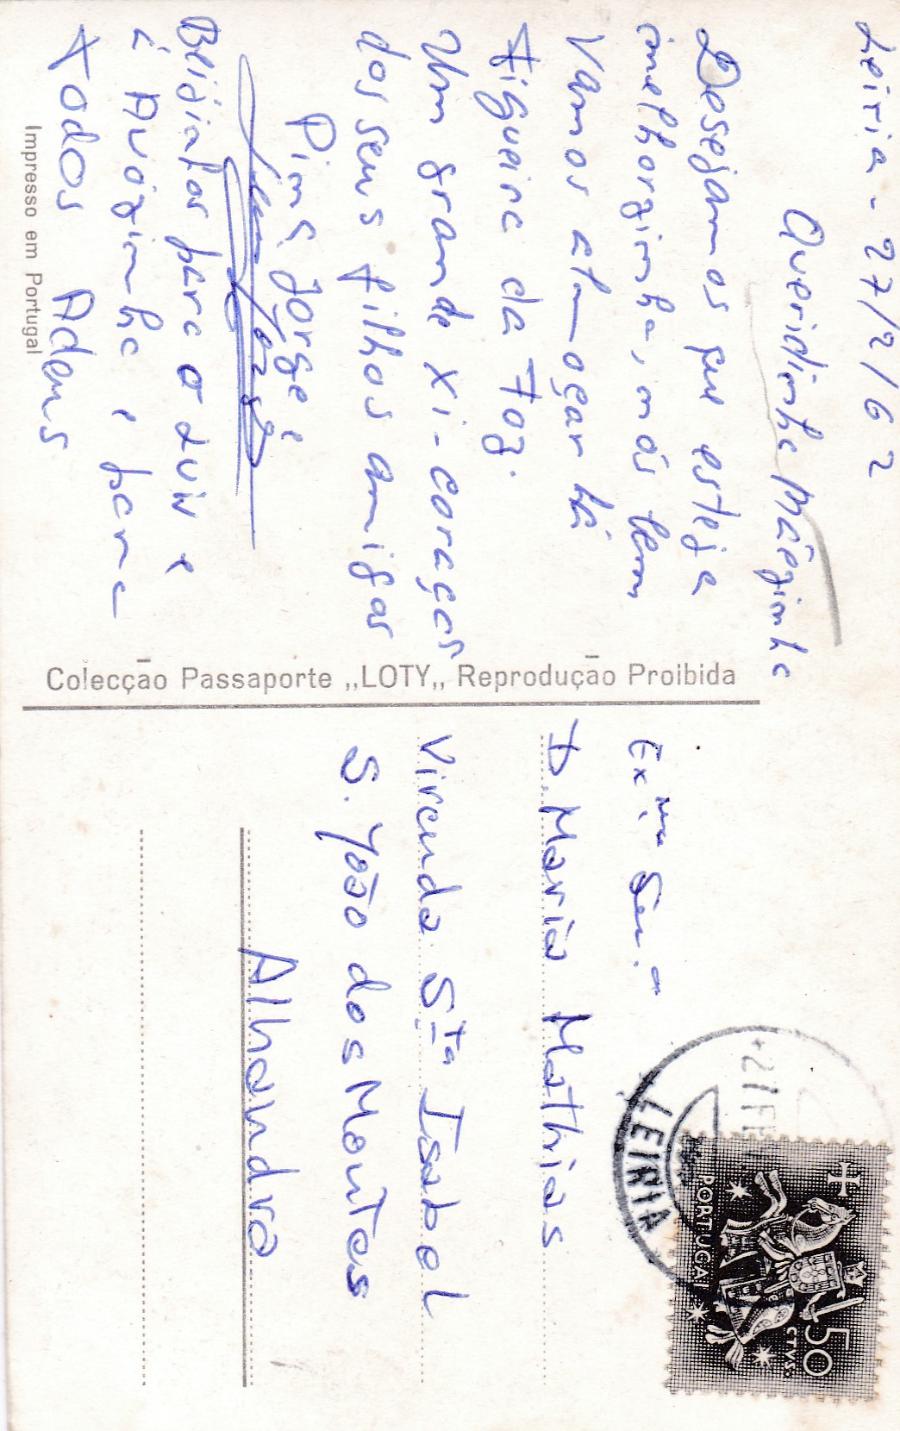 Leiria - 27/2/62
Queridinha Mãezinha
Desejamos que esteja
melhorzinha, nós bem
Vamos almoçar há
Figueira da Foz.
Um grande xi-coração
dos seus filhos amigos
Pins Jorge
Beijinhos para o Luis e
é Avózinha e para
todos Adeus
Impresso em Portugal
Colecção Passaporte „LOTY„ Reprodução Proibida
Exma Snr.a
D. Maria Mathias
Vivenda Sta Isabel
S. João dos Montes
Alhandra
LEIRIA
27 FE
PORTUGAL
50
CTVS.